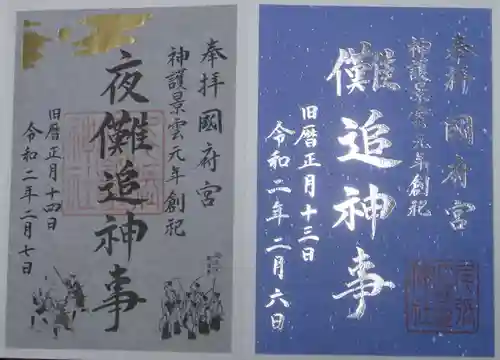 奉拝 國府宮
神護景雲元年創祀
夜儺追神事
旧暦正月十四日
令和二年二月七日
奉拝 國府宮
神護景雲元年創祀
儺追神事
旧暦正月十三日
令和二年二月六日